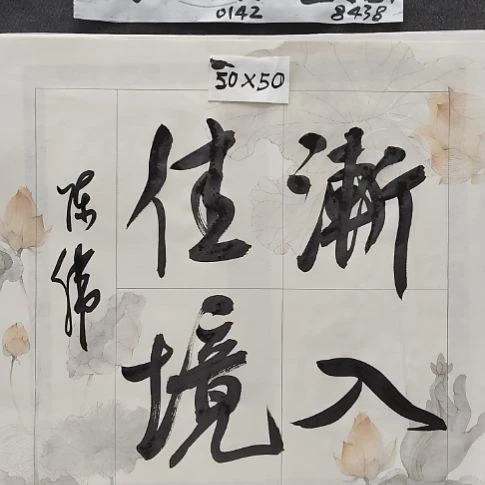 0142
8438
50×50
漸入
佳境
陈伟